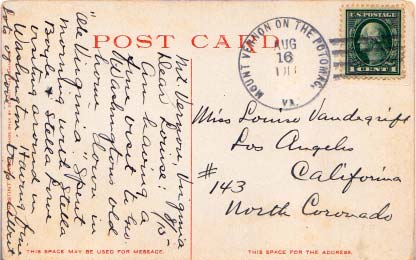 POST CARD
Mt. Vernon, Virginia
Dear Louise:
Am having a
fine visit to his
Washingtons old
home down in
"Ole Virginia" Spent
morning with Stella
Boyle & Stella
visiting around in
Washington. Having fine
lots of love
MOUNT VERNON ON THE POTOMAC,
AUG
16
VA.
U.S. POSTAGE
1 CENT 1
Miss Louise Vandegrift
Los Angelis
California
#143
North Coronado
THIS SPACE MAY BE USED FOR MESSAGE.
THIS SPACE FOR THE ADDRESS.